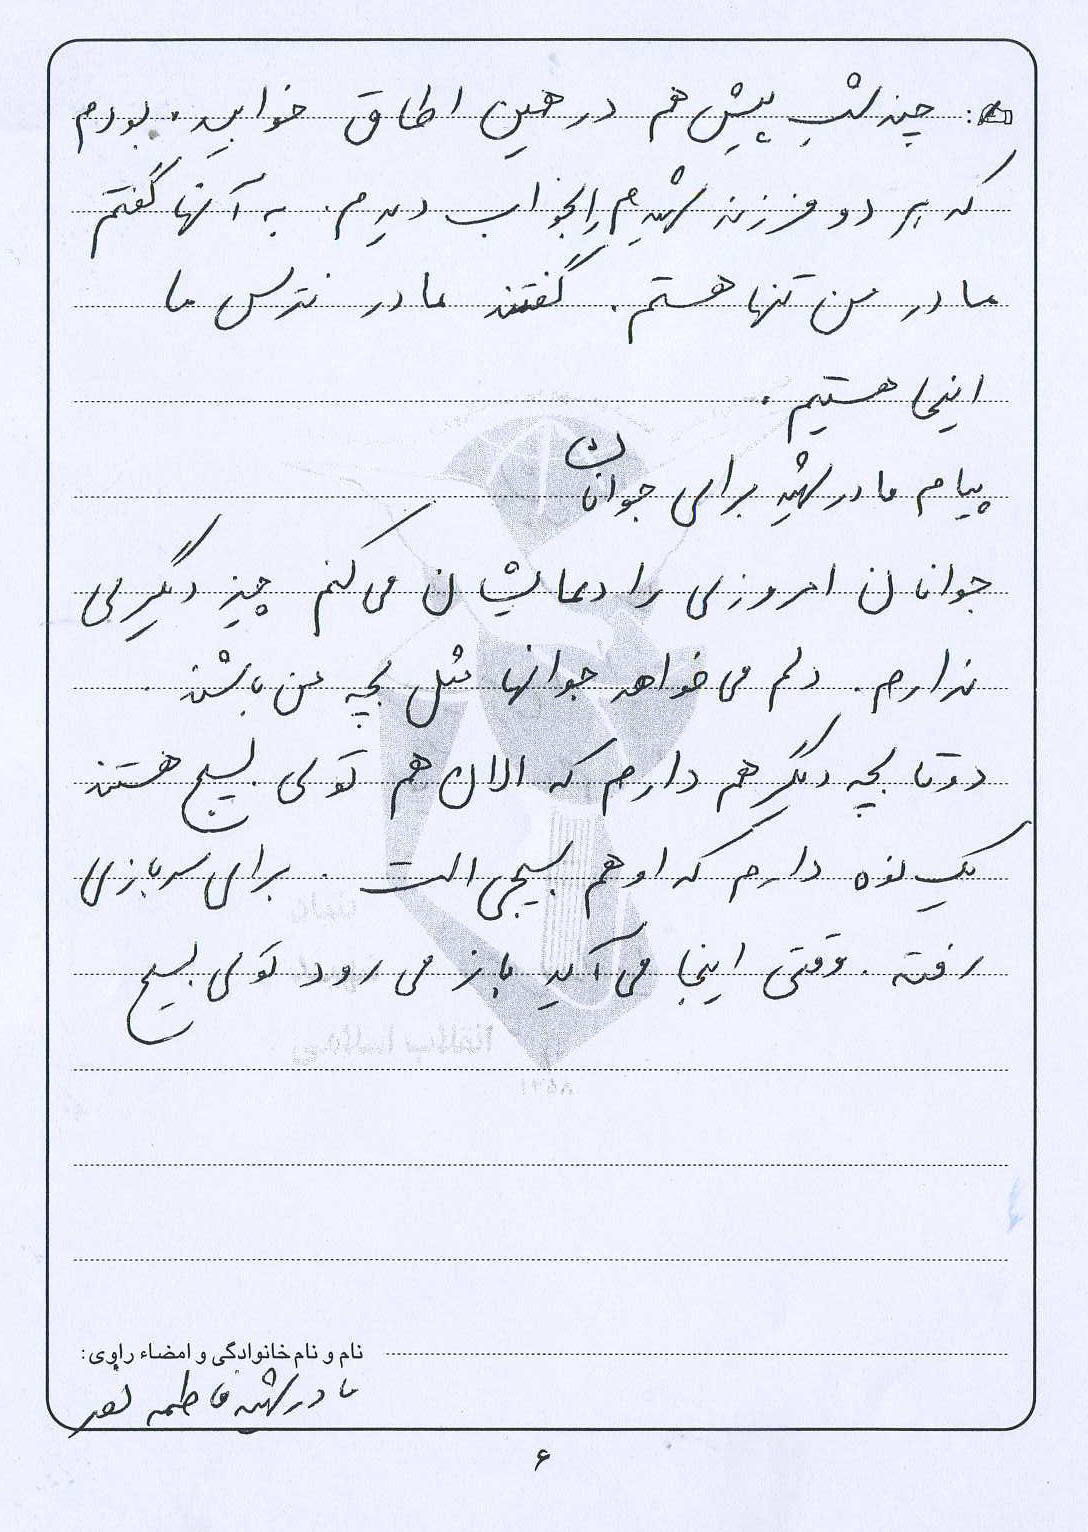 چند شب پیش هم در همین اطاق خوابیده بودم
که هر دو فرزند شهیدم را بخواب دیدم. به آنها گفتم
مادر من تنها هستم. گفتند مادر نترس ما
اینجا هستیم.
پیام مادر شهید برای جوانان
جوانان امروزی را دعایشان می کنم چیز دیگری
ندارم. دلم می خواهد جوانها مثل بچه من باشند.
دوتا بچه دیگر هم دارم که الان هم توی بسیج هستند
یک نوه دارم که او هم بسیجی است. برای سربازی
رفته. وقتی اینجا می آید باز می رود توی بسیج
نام و نام خانوادگی و امضاء راوی:
مادر شهید فاطمه
۶